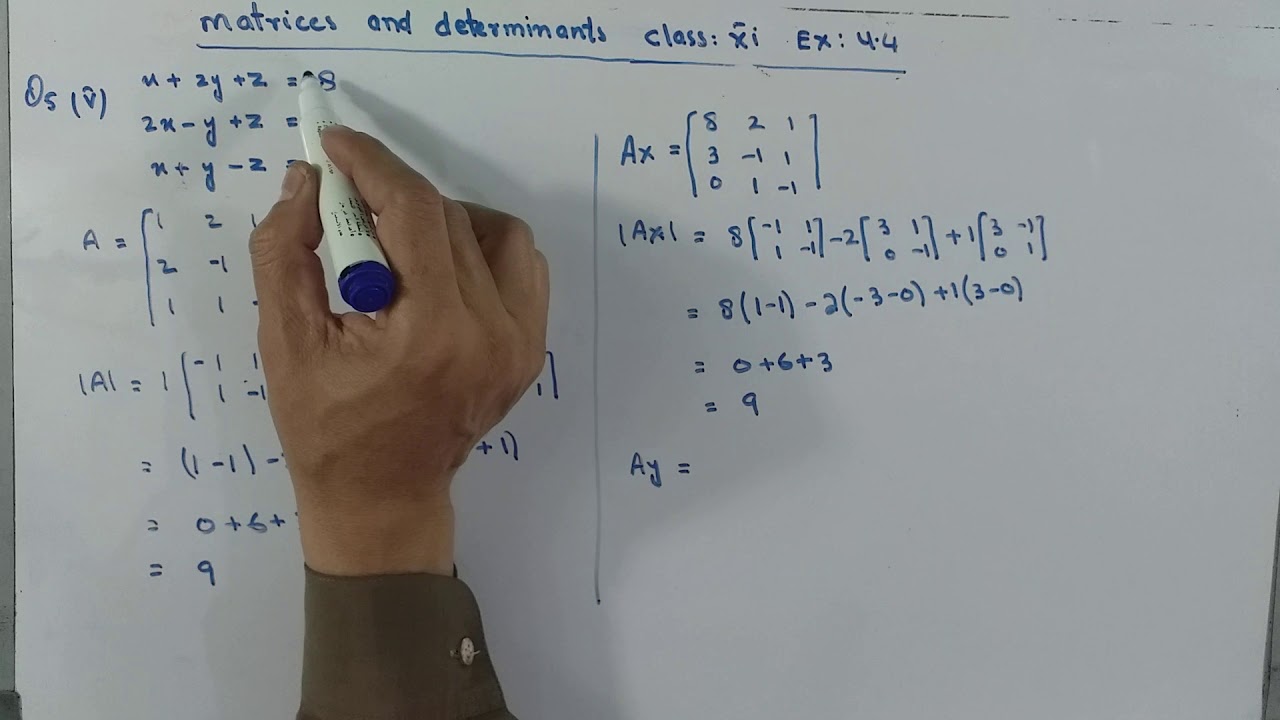 matrices and determinants class: xi Ex: 4.4
Q5 (v) x + 2y + z = 8
2x - y + z =
x + y - z =
A = [ 1 2 1
2 -1
1 1 -
|A| = 1 [ -1 1
1 -1 1 ]
= (1-1) - + 1)
= 0 + 6 +
= 9
Ax = [ 8 2 1
3 -1 1
0 1 -1 ]
|Ax| = 8 [ -1 1 ] - 2 [ 3 1 ] + 1 [ 3 -1 ]
1 -1 0 -1 0 1
= 8(1-1) - 2(-3-0) + 1(3-0)
= 0+6+3
= 9
Ay =